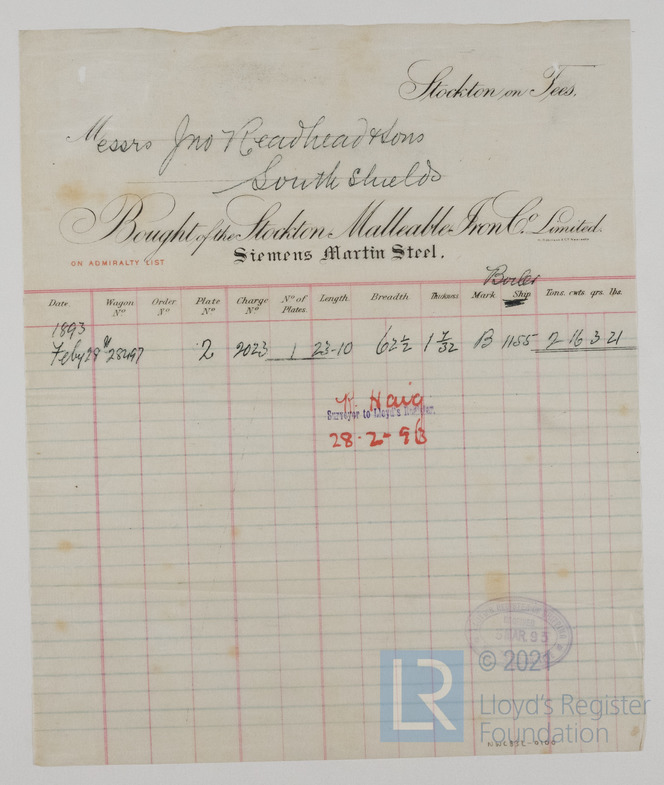 Stockton on Tees.
Messrs Jno Readhead & Sons
South Shields
Bought of the Stockton Malleable Iron Co. Limited.
ON ADMIRALTY LIST
Siemens Martin Steel.
Boiler
Date Wagon No Order No Plate No Charge No No of Plates. Length. Breadth Thickness Mark Ship Tons. cwts. qrs. lbs.
1893
Feby 28 28497 2 2023 1 23-10 62½ 1 7/32 B 1155 2 16 3 21
Haig
Surveyor to Lloyd's Register.
28-2-93
MAR 93
© 2021
LR
Lloyd's Register
Foundation